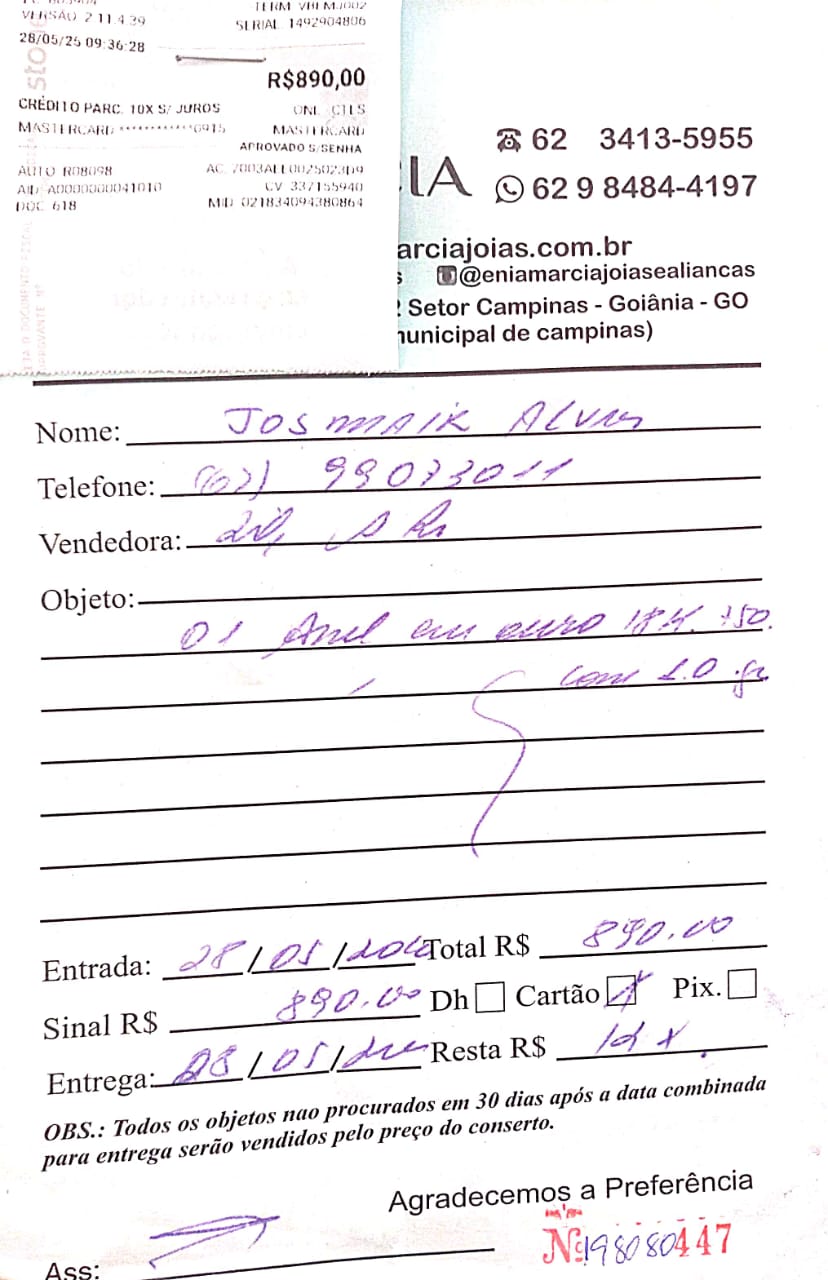 VERSÃO 2.11.4.39
SERIAL 1492904806
28/05/25 09:36:28
stone
R$890,00
CRÉDITO PARC. 10X S/ JUROS
ONL CTLS
MASTERCARD ************0915
MASTERCARD
APROVADO S/SENHA
AUTO R08098
AID A0000000041010
CV 337155940
DOC 618
MID 021834094380864
CIA
62 3413-5955
62 9 8484-4197
arciajoias.com.br
@eniamarciajoiasealiancas
Setor Campinas - Goiânia - GO
unicipal de campinas)
Nome: JOSMAIK ALVES
Telefone: (62) 99073011
Vendedora:
Objeto:
01 Anel em ouro 18K. 750.
com 1.0 gr
Entrada: 28/05/ Total R$ 890.00
Sinal R$ 890.00 Dh Cartão Pix.
Entrega: 28/05/ Resta R$
OBS.: Todos os objetos nao procurados em 30 dias após a data combinada
para entrega serão vendidos pelo preço do conserto.
Agradecemos a Preferência
Ass: